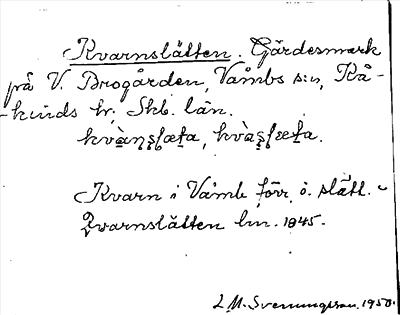 Kvarnslätten. Gärdesmark
på V. Brogården, Våmbs s:n, Kå-
-kinds hr, Skb. län.
kvàn̥slæta, kvàslæta.
Kvarn i Våmb förr o. slätt. -
Qvarnslätten lm. 1845.
L. M. Svenungsson. 1950.